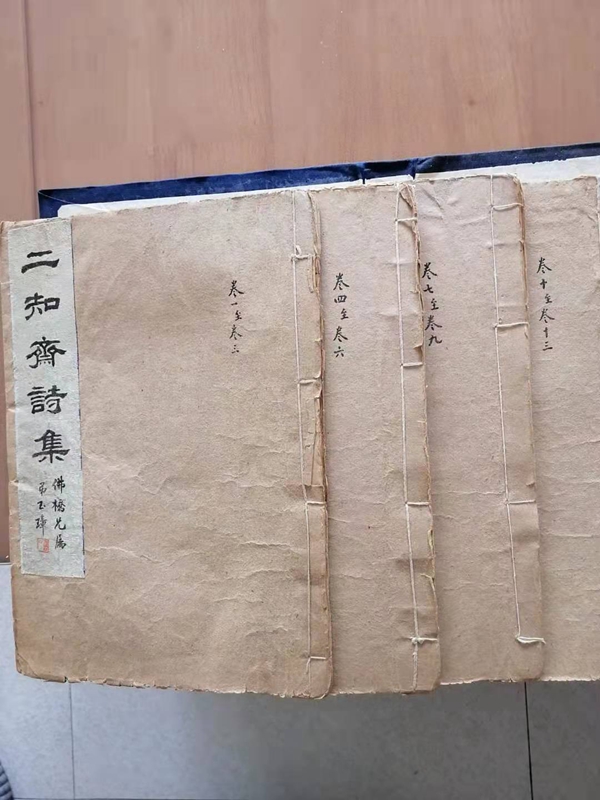 二知齋詩集
佛橋兄属
弟玉璋
卷一至卷三
卷四至卷六
卷七至卷九
卷十至卷十三